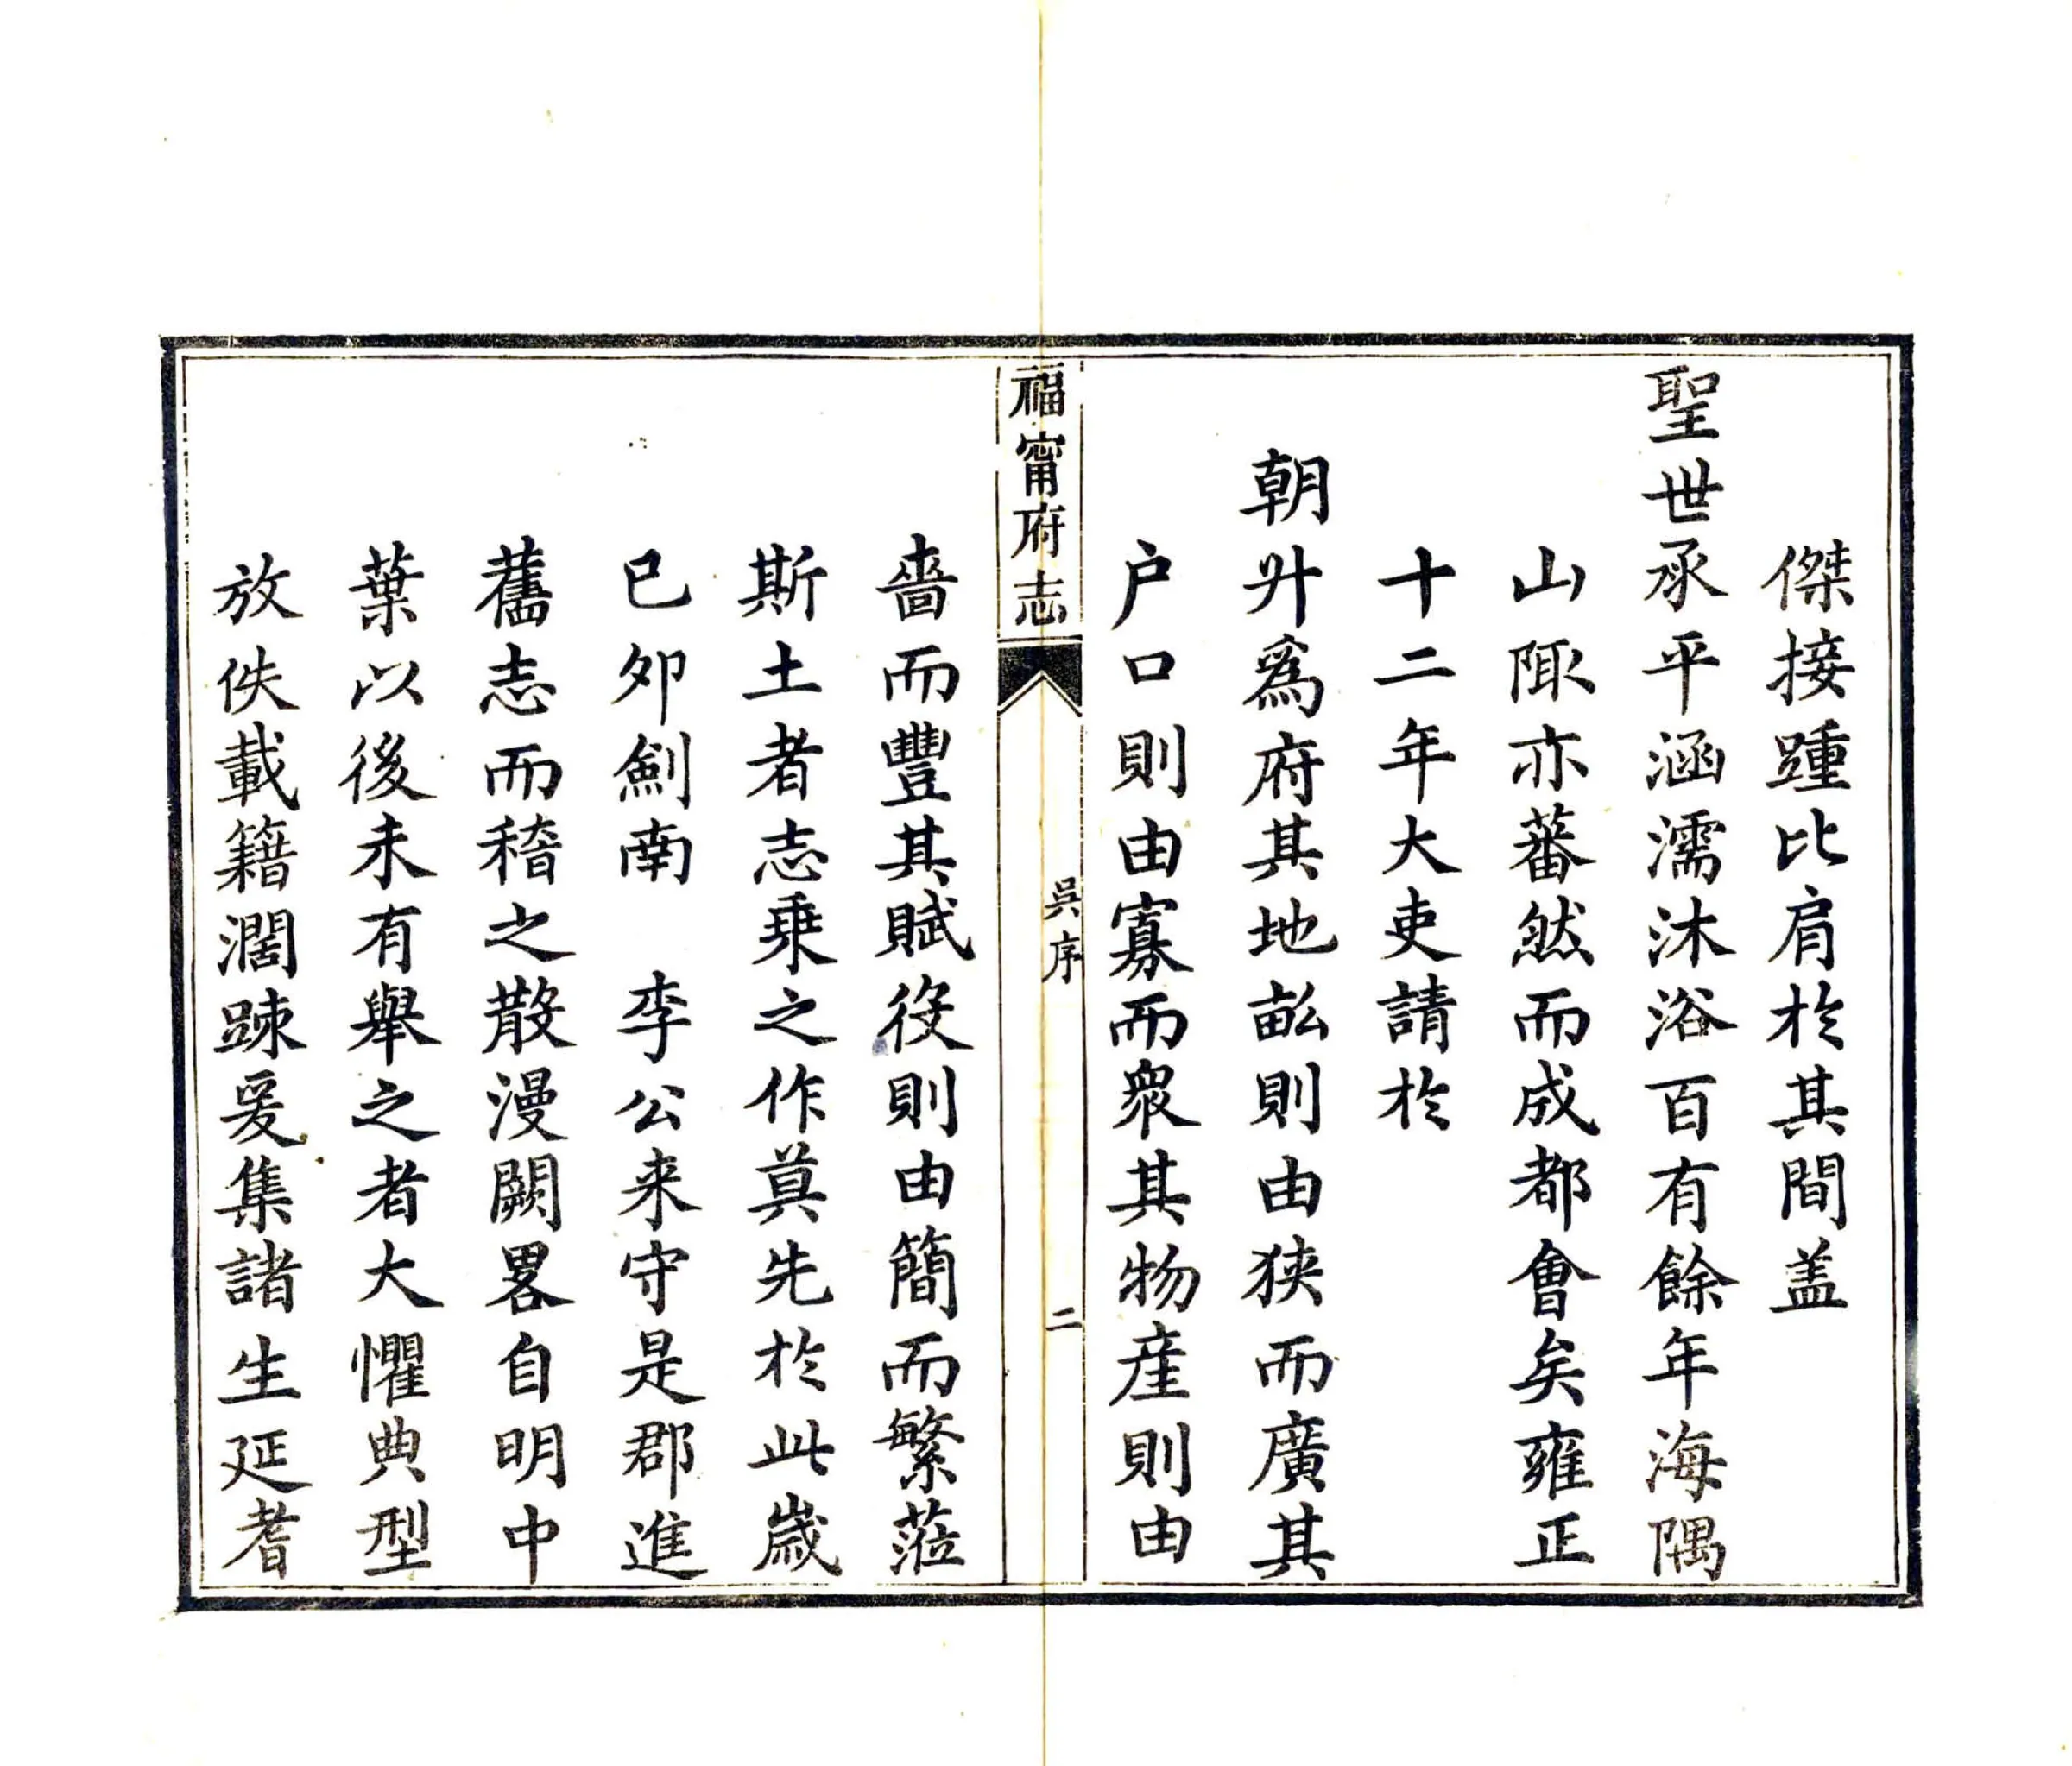 傑接踵比肩於其間盖
聖世承平涵濡沐浴百有餘年海隅
山陬亦蕃然而成都會矣雍正
十二年大吏請於
朝升為府其地畝則由狹而廣其
户口則由寡而衆其物產則由
福甯府志
吳序
二
嗇而豐其賦役則由簡而繁蒞
斯土者志乗之作莫先於此歲
已夘劍南 李公来守是郡進
舊志而稽之散漫闕畧自明中
葉以後未有舉之者大懼典型
放佚載籍濶踈爰集諸生延耆